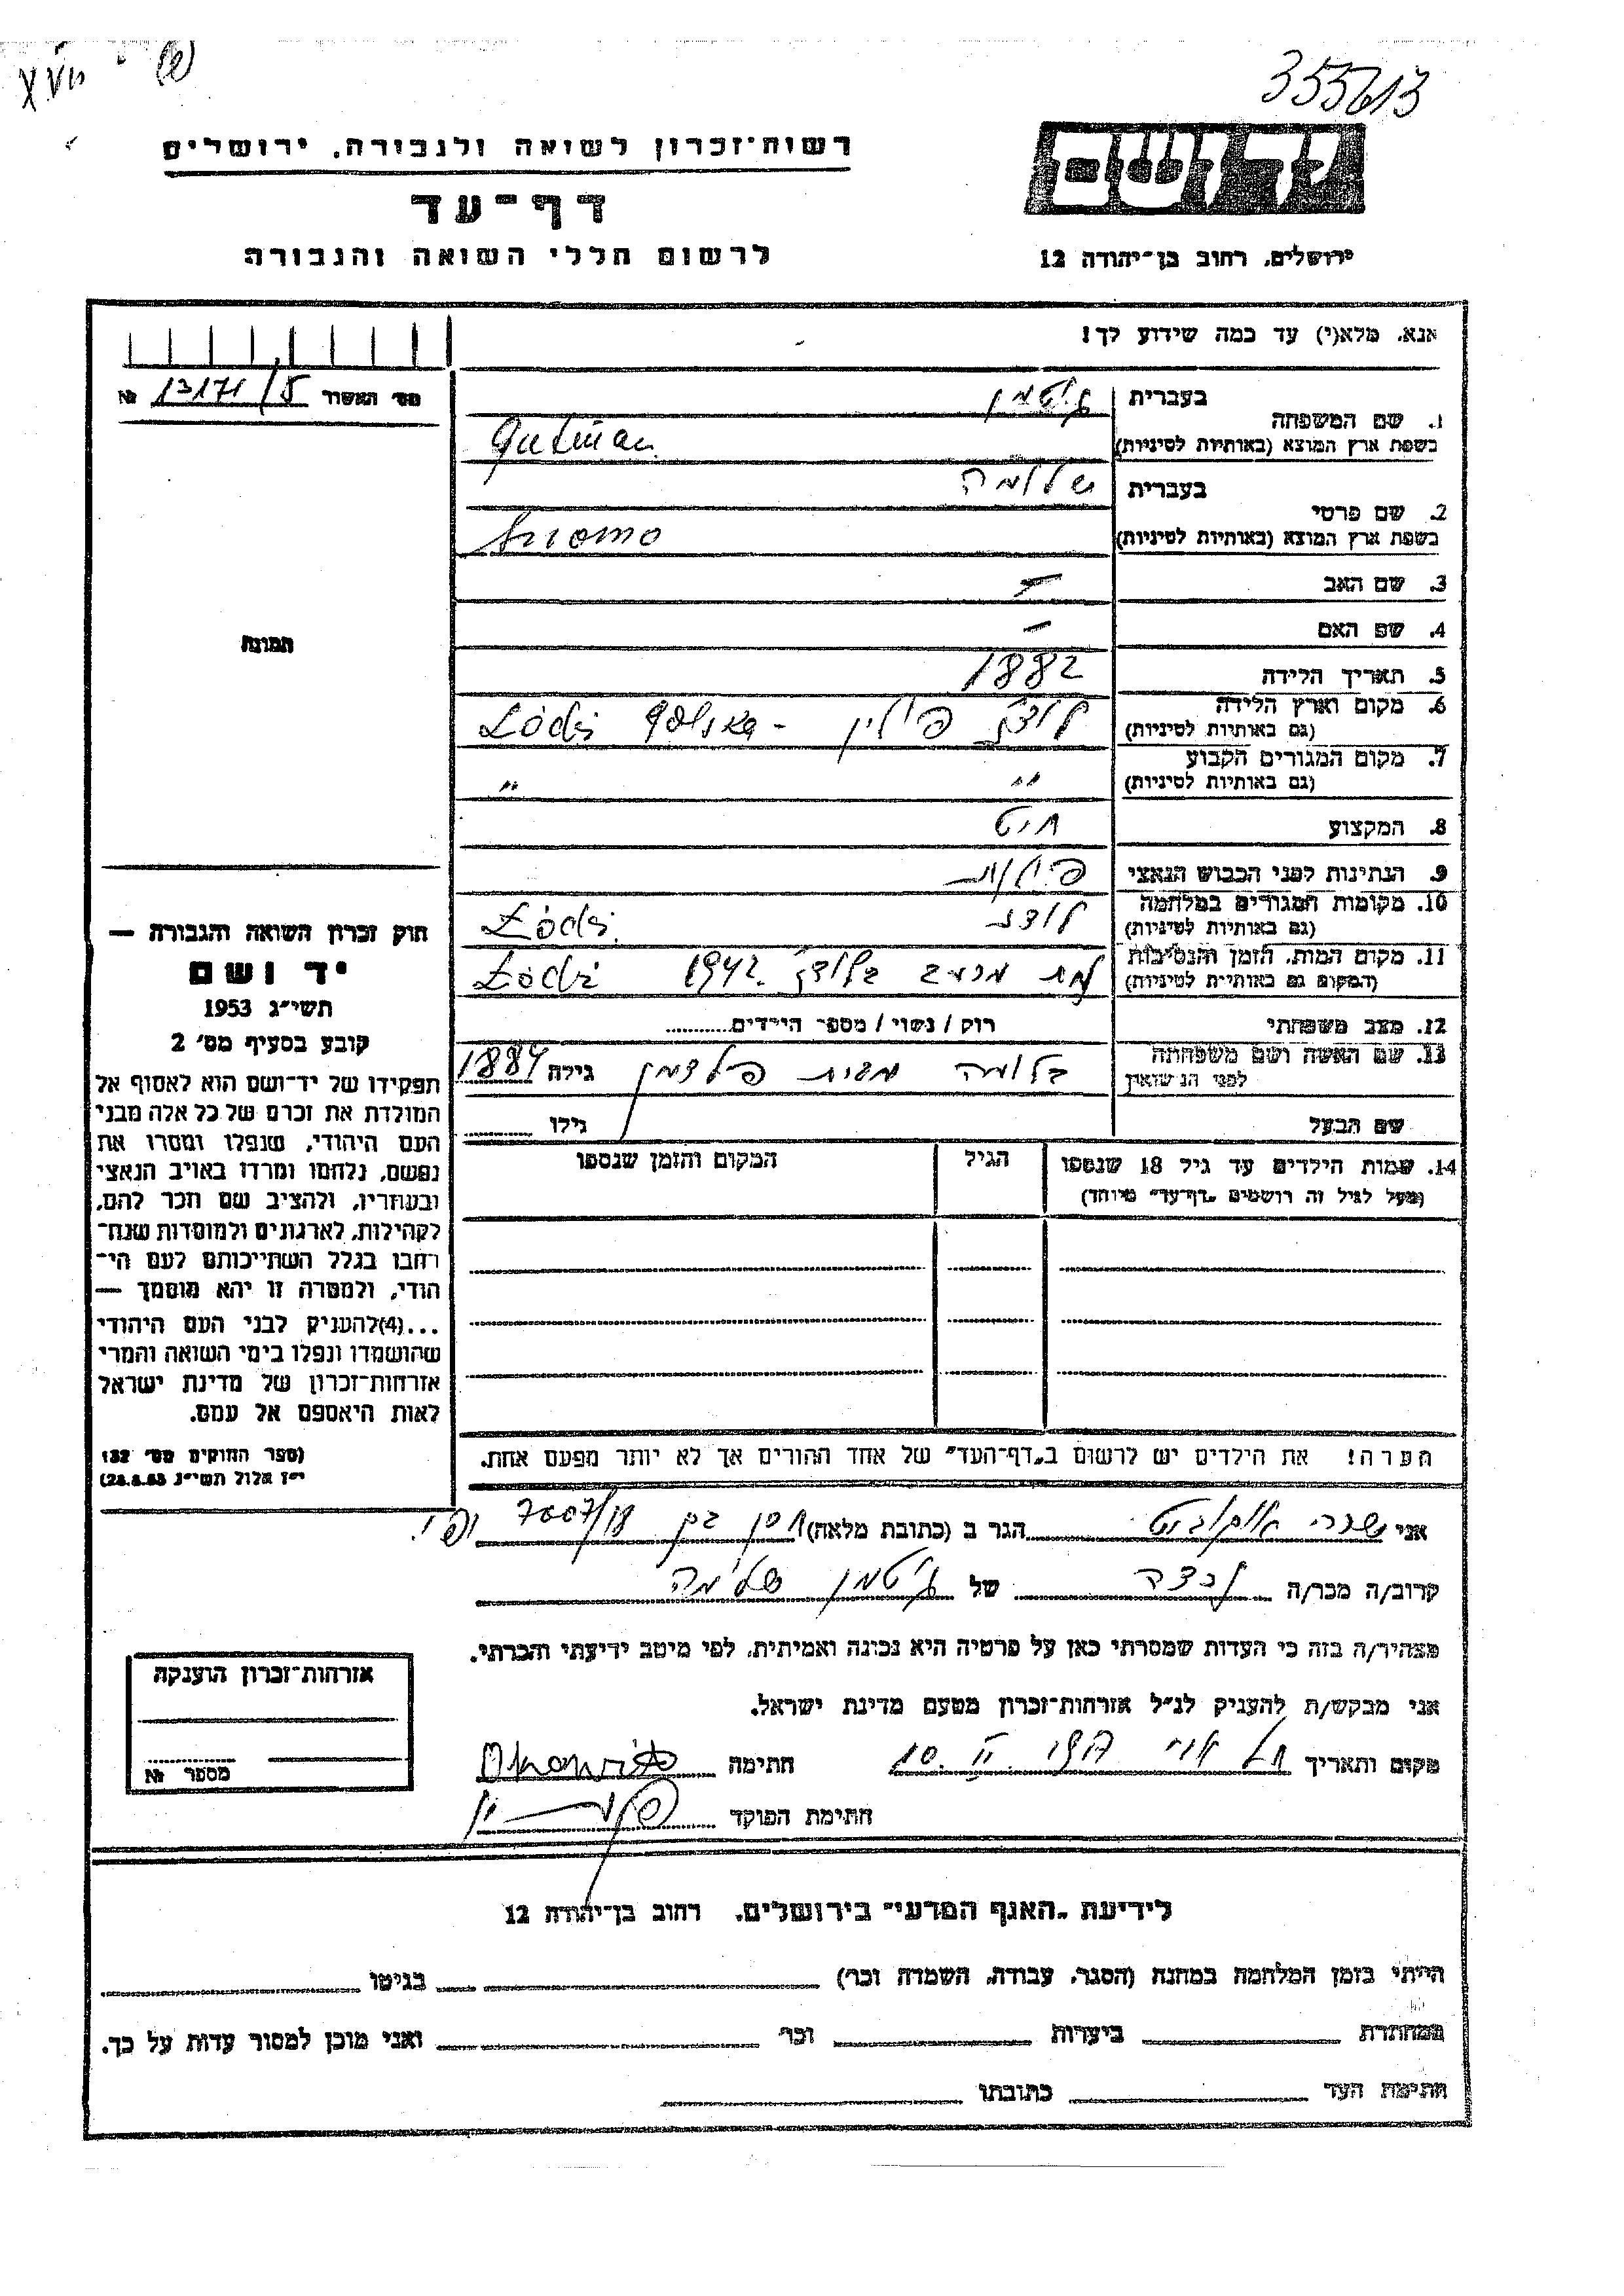 355613
רשות־זכרון לשואה ולגבורה, ירושלים
דף־עד
לרשום חללי השואה והגבורה
ידושם
ירושלים, רחוב בן־יהודה 12
אנא, מלא(י) עד כמה שידוע לך!
מס' האשור 13171/5 №
1. שם המשפחה
בעברית גוטמן
בשפת ארץ המוצא (באותיות לטיניות) Gutman
2. שם פרטי
בעברית שלומה
בשפת ארץ המוצא (באותיות לטיניות)
3. שם האב —
4. שם האם —
5. תאריך הלידה 1882
6. מקום וארץ הלידה
(גם באותיות לטיניות) לודז פולין - Łódź
7. מקום המגורים הקבוע
(גם באותיות לטיניות) " "
8. המקצוע חיט
9. הנתינות לפני הכבוש הנאצי פולנית
10. מקומות המגורים במלחמה
(גם באותיות לטיניות) לודז Łódź
11. מקום המות, הזמן והנסיבות
(המקום גם באותיות לטיניות) מת מרעב בלודז 1942 Łódź
12. מצב משפחתי רוק / נשוי / מספר הילדים
13. שם האשה ושם משפחתה
לפני הנשואין בלומה מבית פלדמן גילה 1884
שם הבעל גילו
14. שמות הילדים עד גיל 18 שנספו
(מעל לגיל זה רושמים „דף־עד" מיוחד)
הגיל
המקום והזמן שנספו
הערה! את הילדים יש לרשום ב„דף־העד" של אחד ההורים אך לא יותר מפעם אחת.
תמונה
חוק זכרון השואה והגבורה —
יד ושם
תשי"ג 1953
קובע בסעיף מס' 2
תפקידו של יד־ושם הוא לאסוף אל
המולדת את זכרם של כל אלה מבני
העם היהודי, שנפלו ומסרו את
נפשם, נלחמו ומרדו באויב הנאצי
ובעוזריו, ולהציב שם וזכר להם,
לקהילות, לארגונים ולמוסדות שנח־
רבו בגלל השתייכותם לעם הי־
הודי, ולמטרה זו יהא מוסמך —
...(4)להעניק לבני העם היהודי
שהושמדו ונפלו בימי השואה והמרי
אזרחות־זכרון של מדינת ישראל
לאות היאספם אל עמם.
(ספר החוקים מס' 132
י"ז אלול תשי"ג 28.8.53)
אני הגר ב (כתובת מלאה) 7007/18
קרוב/ה מכר/ה נכדה של גוטמן שלומה
מצהיר/ה בזה כי העדות שמסרתי כאן על פרטיה היא נכונה ואמיתית, לפי מיטב ידיעתי והכרתי.
אני מבקש/ת להעניק לנ"ל אזרחות־זכרון מטעם מדינת ישראל.
מקום ותאריך חתימה
חתימת הפוקד
אזרחות־זכרון הוענקה
מספר №
לידיעת „האגף המדעי" בירושלים, רחוב בן־יהודה 12
הייתי בזמן המלחמה במחנה (הסגר, עבודה, השמדה וכו') בגיטו
במחתרת ביערות וכו' ואני מוכן למסור עדות על כך.
חתימת העד כתובתו